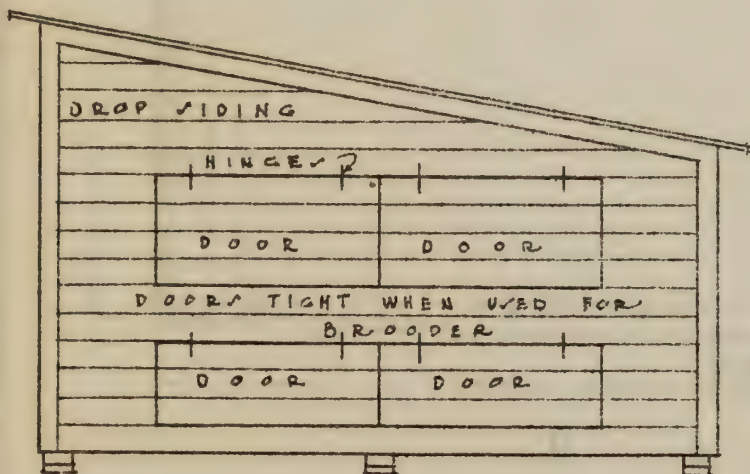 DROP SIDING
HINGES
DOOR DOOR
DOORS TIGHT WHEN USED FOR
BROODER
DOOR DOOR